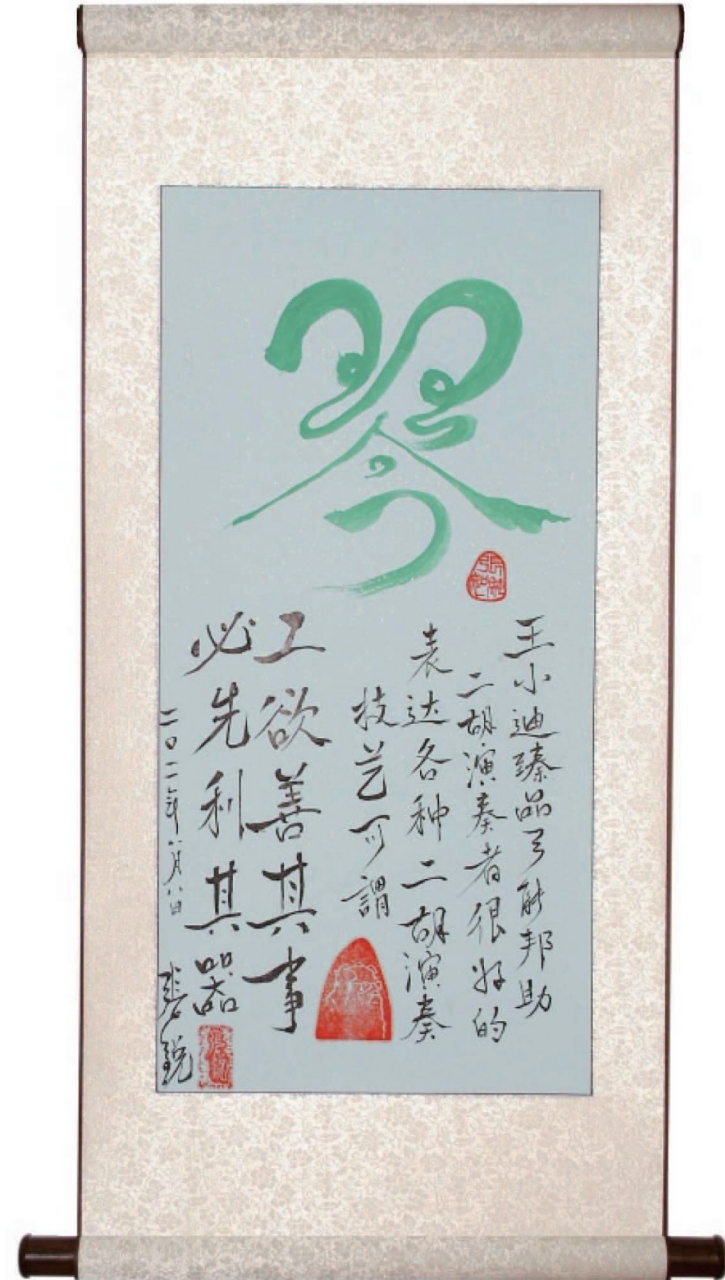 琴
王小迪臻品弓能邦助
二胡演奏者很好的
表达各种二胡演奏
技艺可謂
工欲善其事
必先利其器
二〇一一年八月八日